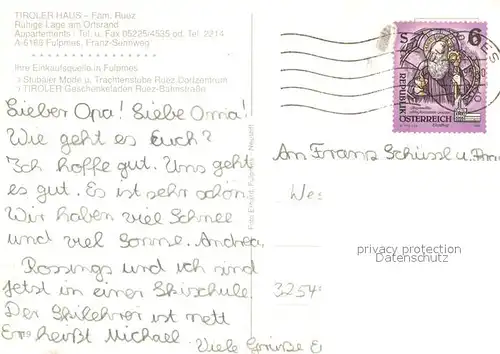 TIROLER HAUS - Fam. Ruez
Ruhige Lage am Ortsrand
Appartements · Tel. u. Fax 05225/4535 od. Tel. 2214
A-6166 Fulpmes, Franz-Sennweg
Ihre Einkaufsquelle in Fulpmes
Stubaier Mode u. Trachtenstube Ruez, Dorfzentrum
TIROLER Geschenkeladen Ruez-Bahnstraße
Lieber Opa! Liebe Oma!
Wie geht es Euch?
Ich hoffe gut. Uns geht
es gut. Es ist sehr schön.
Wir haben viel Schnee
und viel Sonne. Andrea,
Rossings und ich sind
jetzt in einer Skischule.
Der Skilehrer ist nett
Er heißt Michael.
Viele Grüße
S 6
REPUBLIK
ÖSTERREICH
An Franz Schüssl u.
Wes
3254
privacy protection
Datenschutz